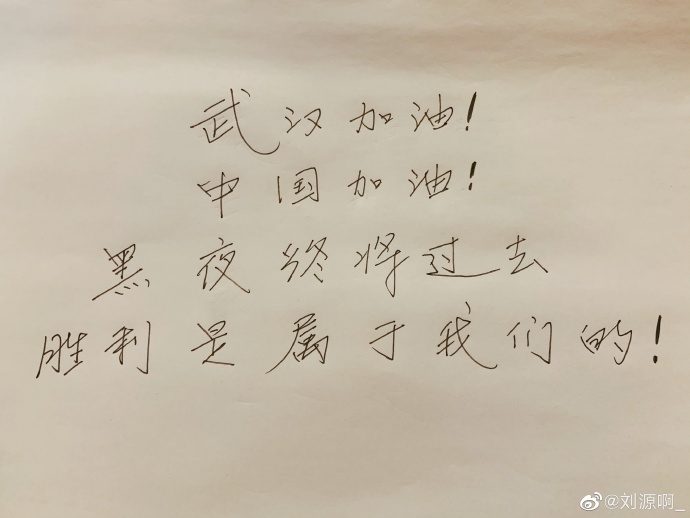 武汉加油!
中国加油!
黑夜终将过去
胜利是属于我们的!
@刘源啊_